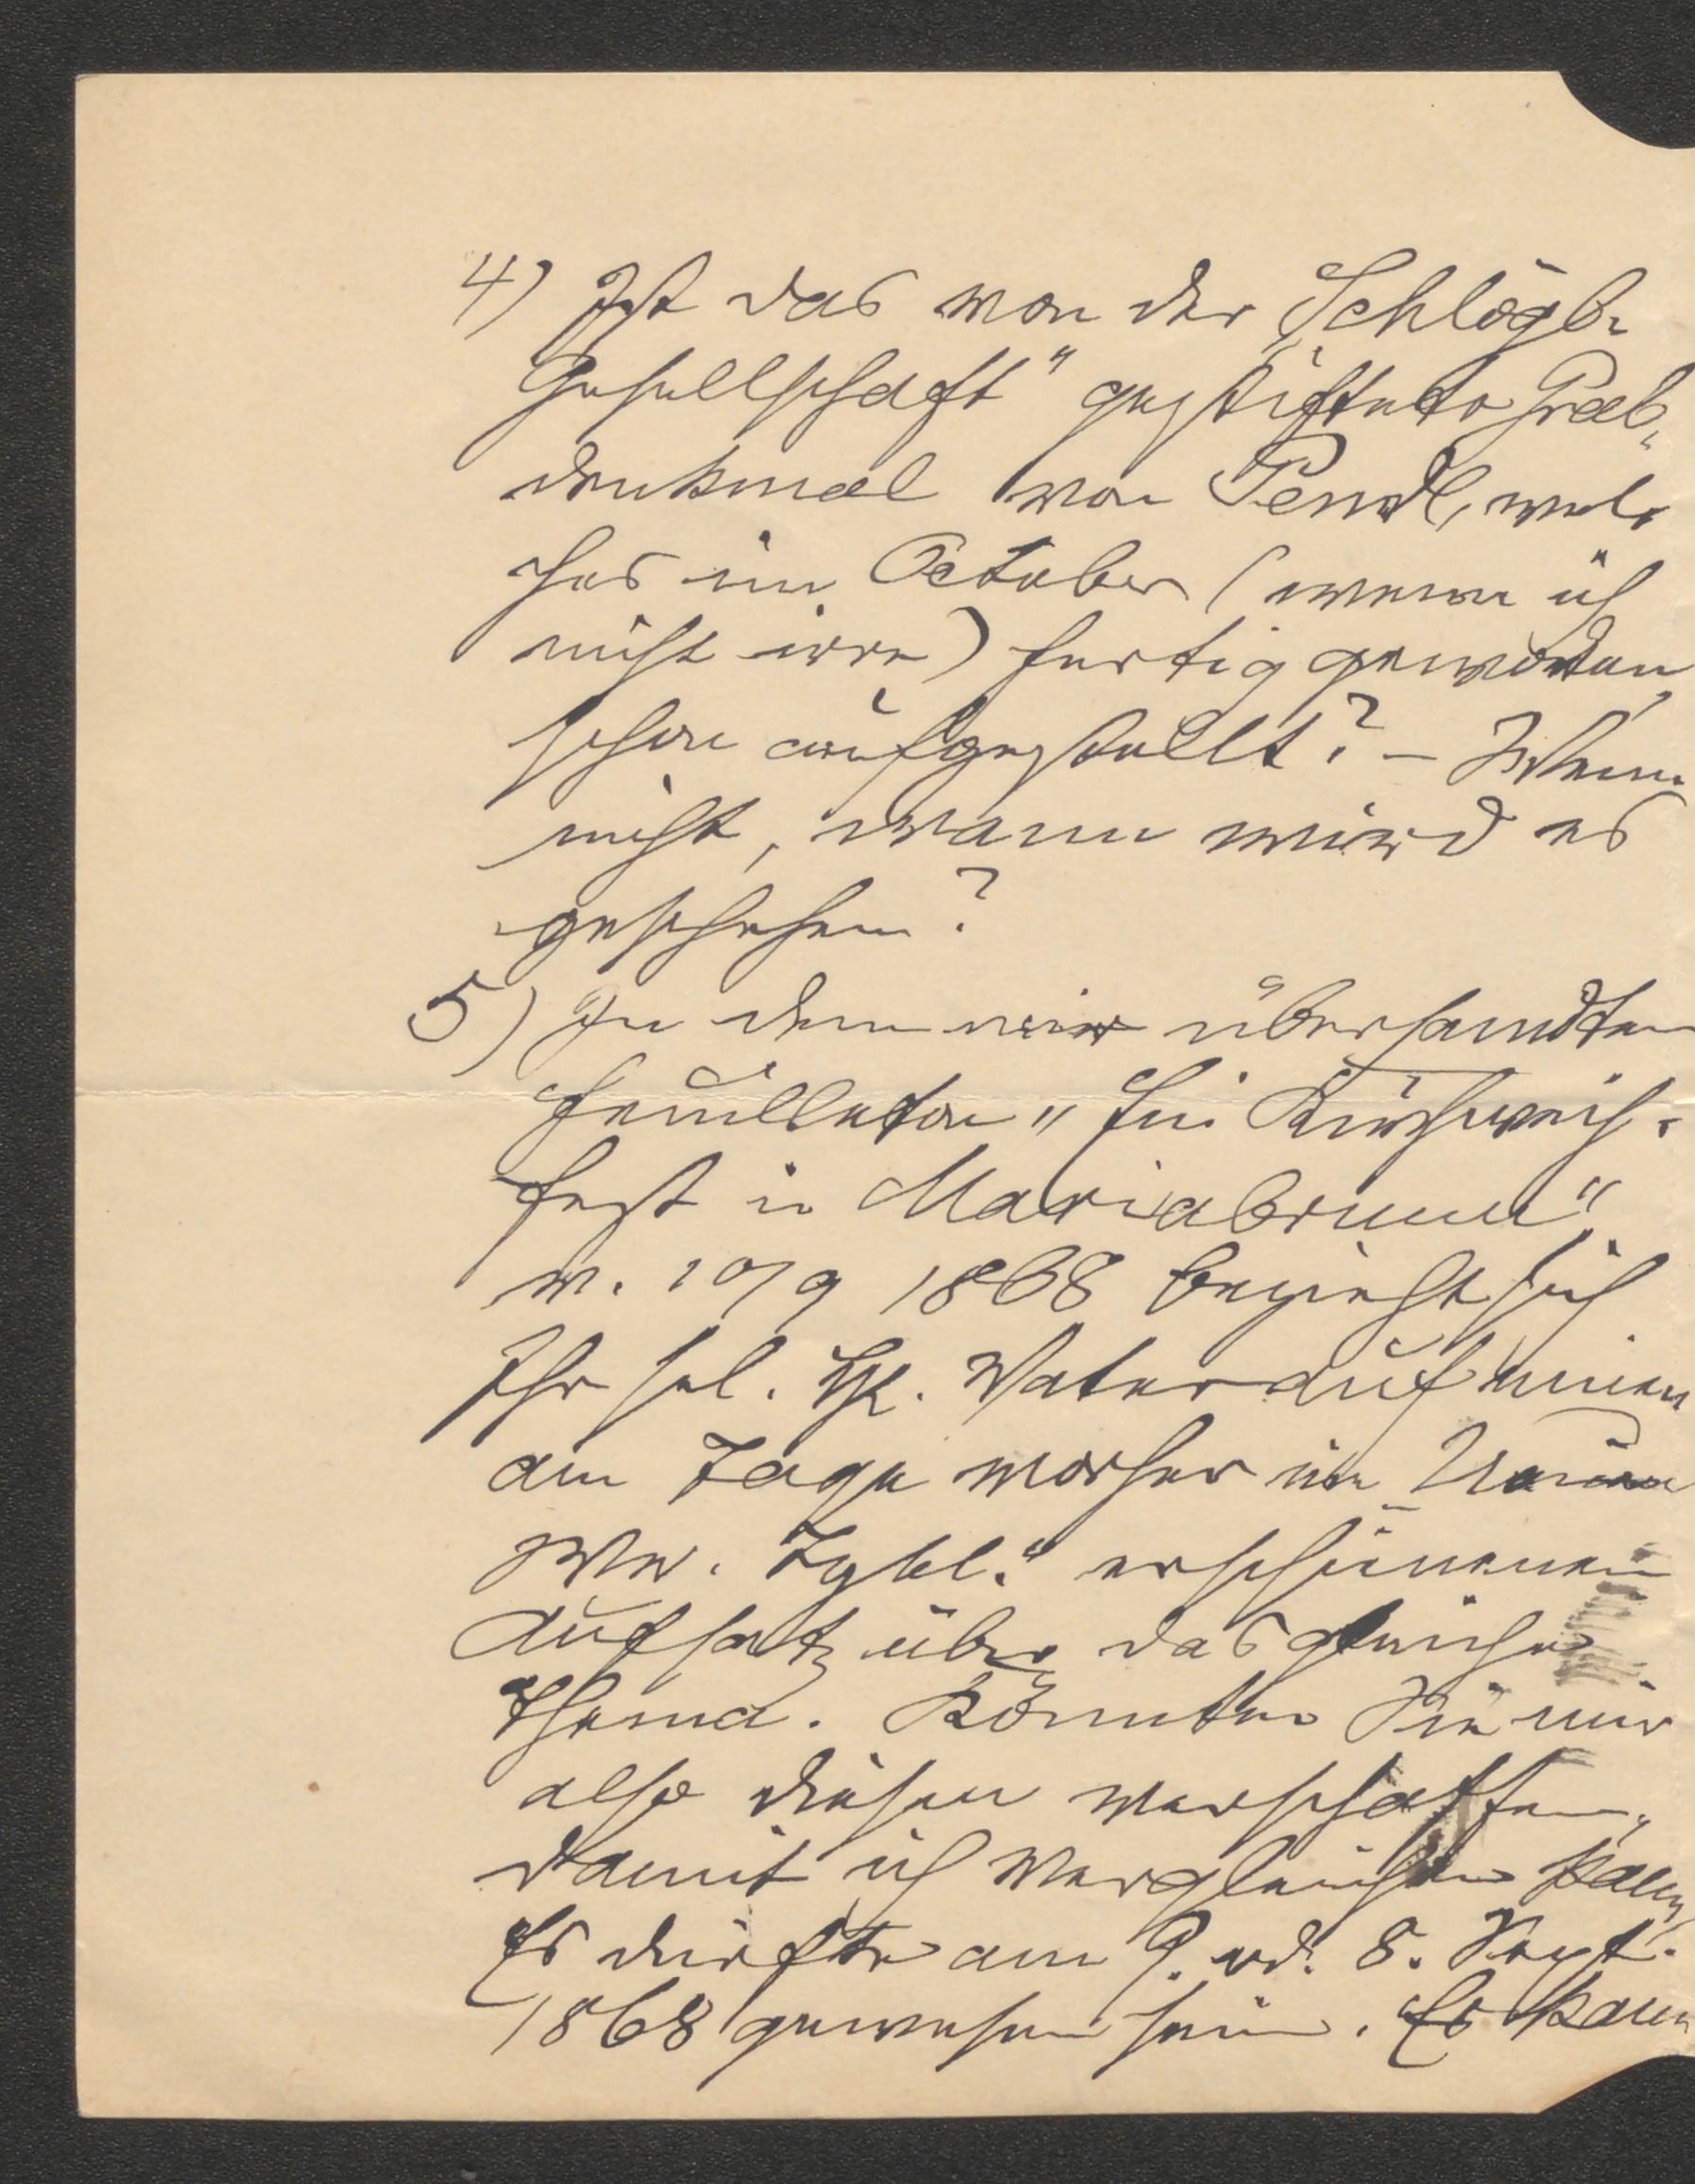 4) Ist das von der „Schlögl-
Gesellschaft" gestiftete Grab-
denkmal von Pendl, wel-
ches im October (wenn ich
nicht irre) fertig geworden,
schon aufgestellt? – Wenn
nicht, wann wird es
geschehen?
5) In dem mir übersandten
Feuilleton „Ein Kirchweih-
fest in Mariabrunn"
v. 10/9 1868 bezieht sich
Ihr sel. H. Vater auf einen
am Tage vorher im „Neuen
Wr. Tgbl." erschienenen
Aufsatz über das gleiche
Thema. Könnten Sie mir
also diesen verschaffen,
damit ich vergleichen kann,
Es dürfte am 9. od. 8. Sept.
1868 gewesen sein. Es kann